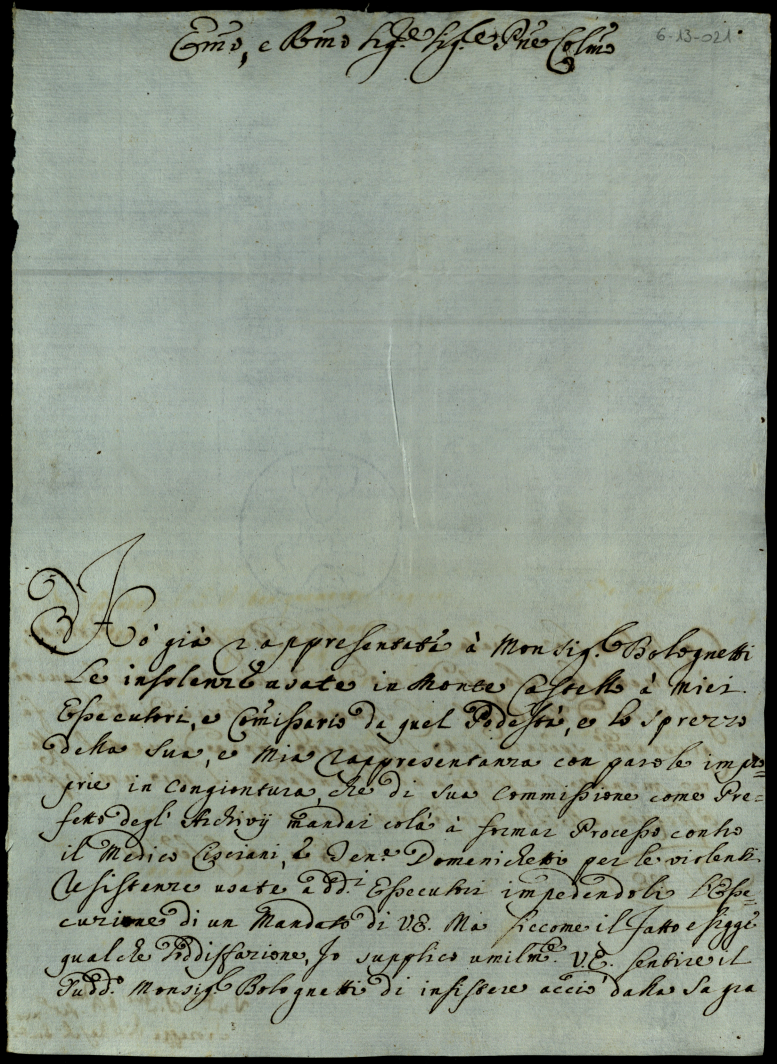 6-13-021
Em̃o, e Rm̃o Sig.re Sig.re Pñe Colm̃o
Hò già rappresentato à Monsig.r Bolognetti
Le insolenze usate in Monte Castello à miei
Essecutori, e Com̃issario da quel Podestà, e lo sprezzo
della sua, e mia rappresentanza con parole impro=
prie in congiontura, che di sua Commissione come Pre=
fetto degl' Archivij mandai colà à formar Processo contro
il Medico Cisciani, e Ten.e Domenichetti per le violenti
resistenze usate à dd.i Essecutori impedendoli l'Esse=
cuzione di un Mandato di V.E. Ma siccome il fatto esigge
qualche soddisfazione, Io supplico umilm.e V.E. sentire il
sudd.o Monsig.r Bolognetti di insistere acciò dalla Sagra